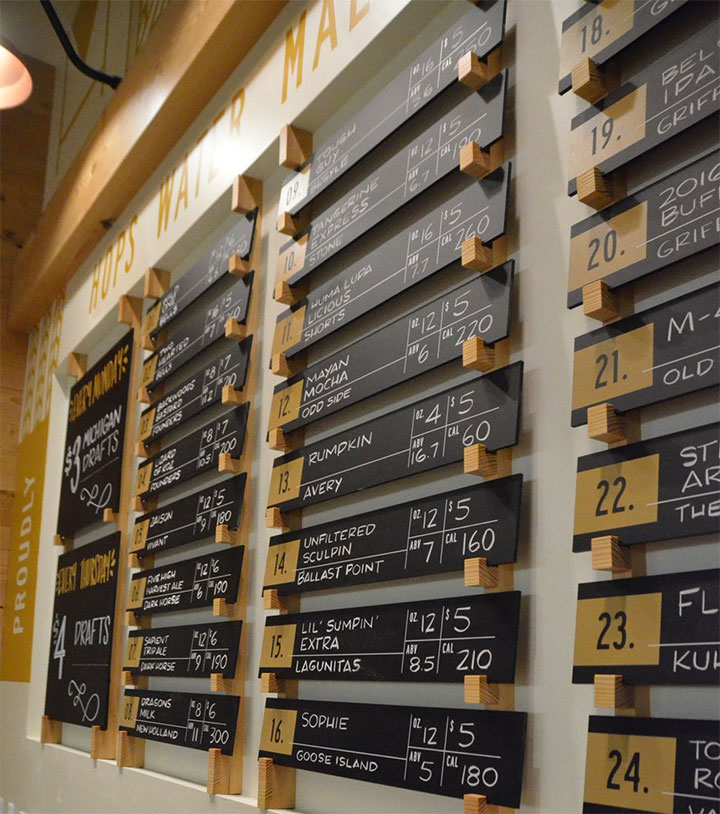 HOPS WATER MAL
PROUDLY
EVERY MONDAY
$3 MICHIGAN
DRAFTS
EVERY THURSDAY
$4 DRAFTS
03.
BACKWOODS
BASTARD
FOUNDERS
OZ 8 $7
04.
FOUNDERS
OZ 8 $7
ABV 10.5 CAL 200
05.
SAISON
VIVANT
OZ 12 $5
ABV 9 CAL 180
06.
FIVE HIGH
HARVEST ALE
DARK HORSE
OZ 12 $6
CAL 190
07.
SAPIENT
TRIPALE
DARK HORSE
OZ 12 $6
ABV 9 CAL 190
08.
DRAGONS
MILK
NEW HOLLAND
OZ 8 $6
ABV 11 CAL 300
09.
TOUGH
GUY
ARGYLE
OZ 16 $5
CAL 250
10.
TANGERINE
EXPRESS
STONE
OZ 12 $5
ABV 6.7 CAL 190
11.
HUMA LUPA
LICIOUS
SHORTS
OZ 16 $5
ABV 7.7 CAL 260
12.
MAYAN
MOCHA
ODD SIDE
OZ 12 $5
ABV 6 CAL 220
13.
RUMPKIN
AVERY
OZ 4 $5
ABV 16.7 CAL 60
14.
UNFILTERED
SCULPIN
BALLAST POINT
OZ 12 $5
ABV 7 CAL 160
15.
LIL' SUMPIN'
EXTRA
LAGUNITAS
OZ 12 $5
ABV 8.5 CAL 210
16.
SOPHIE
GOOSE ISLAND
OZ 12 $5
ABV 5 CAL 180
18.
19.
BEL
IPA
GRIFF
20.
2016
BUFF
GRIFF
21.
M-
OLD
22.
ST
AR
THE
23.
FL
KUH
24.
TO
RO